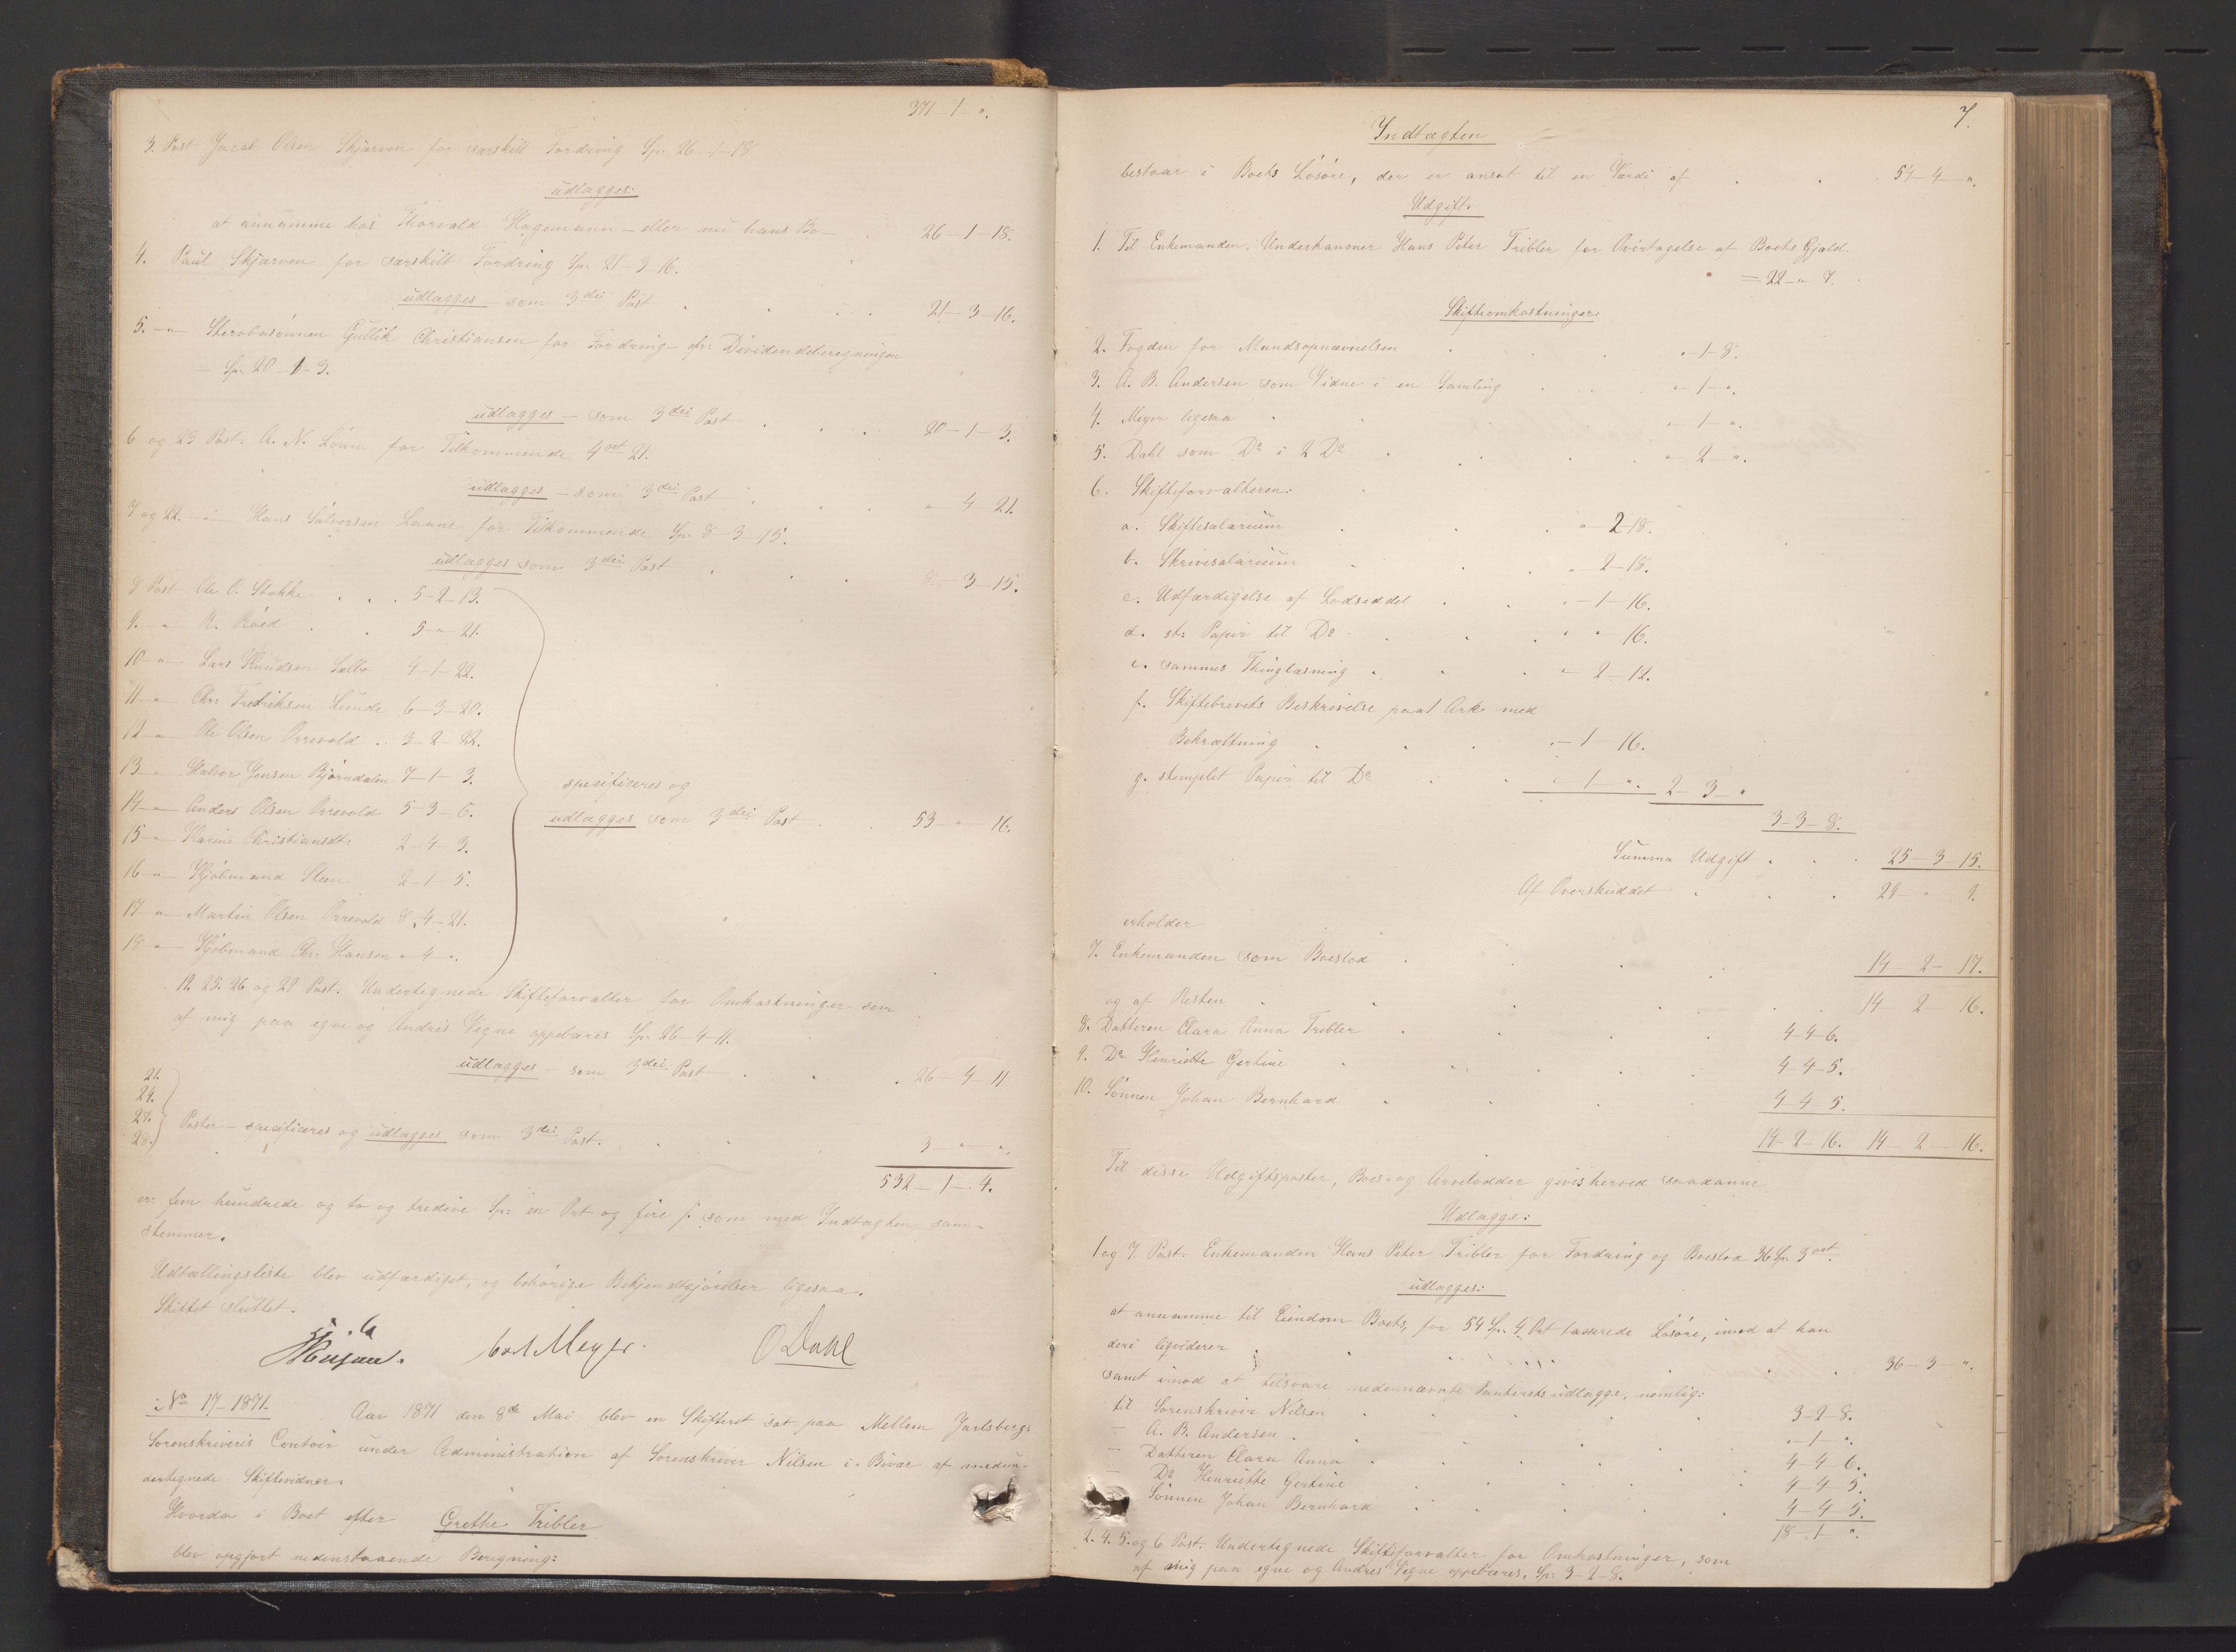 371 - 1 - ".
3. Post Jacob Olsen Skjærven for særskilt Fordring Sp. 26 - 1 - 18
udlægges:
at annamme hos Thorvald Hagemann - eller nu hans Bo - 26 - 1 - 18.
4. Paul Skjærven for særskilt Fordring Sp. 21 - 3 - 16.
udlægges - som 3die Post . . . 21 - 3 - 16.
5. - " - Stervbosønnen Gullik Christiansen for Fordring - cfr: Dividendeberegningen
- Sp. 20 - 1 - 3.
udlægges - som 3die Post . . . 20 - 1 - 3.
6 og 23 Post. A. N. Lønn for Tilkommende 4 ort 21.
udlægges - som 3die Post . . . " - 4 - 21.
7 og 22. - " - Hans Sølversen Laane for Tilkommende Sp. 8 - 3 - 15.
udlægges som 3die Post . . . 8 - 3 - 15.
8 Post Ole O. Stokke . . . 5 - 2 - 13.
9. " R. Røed . . 5 - " - 21.
10 - " - Lars Knudsen Sælbo 4 - 1 - 22.
11 - " - Chr. Fredriksen Lunde 6 - 3 - 20.
12 - " - Ole Olsen Orrevold . 3 - 2 - 22.
13 - " - Halvor Jensen Bjørndalen 7 - 1 - 3.
specificeres og
14 - " - Anders Olsen Orrevold 5 - 3 - 6.
udlægges som 3die Post . . 53 - " - 16.
15 - " - Karine Christiansdt: 2 - 4 - 3.
16 - " - Kjøbmand Steen 2 - 1 - 5.
17 - " - Martin Olsen Orrevold 8 - 4 - 21.
18 - " - Kjøbmand Chr. Hansen " - 4 - ".
19. 25. 26 og 29 Post. Undertegnede Skifteforvalter for Omkostninger som
af mig paa egne og Andres Vegne oppebæres Sp. 26 - 4 - 11.
udlægges - som 3die Post . . . 26 - 4 - 11
21.
24.
27.
28. Poster - specificeres og udlægges som 3die Post. . . 3 - " - ".
532 - 1 - 4.
er fem hundrede og to og tredive Sp: en Ort og fire s. som med Indtægten sam-
stemmer.
Udtællingsliste blev udfærdiget, og behørige Bekjendtgjørelser ligesaa.
Skiftet sluttet.
Meyer. O Dahl
No 17 - 1871. Aar 1871 den 8de Mai blev en Skifteret sat paa Mellem Jarlsbergs
Sorenskriveris Contoir under Administration af Sorenskriver Nilsen i Bivær af medun-
dertegnede Skiftevidner.
Hvorda i Boet efter Grethe Tribler
blev opgjort nedenstaaende Beregning:
7.
Indtægten
bestaar i Boets Løsøre, der er ansat til en Værdi af . . 54 - 4 - ".
Udgift.
1. Til Enkemanden, Underkanoner Hans Peter Tribler for Overtagelse af Boets Gjæld.
= 22 - " 7.
Skifteomkostninger:
2. Fogden for Mandsopnævnelsen . . . " - 1 - 8.
3. A. B. Andersen som Vidne i en Samling . . " - 1 - ".
4. Meyer ligesaa . . . " - 1 - ".
5. Dahl som Do i 2 Do . . . " - 2 - ".
6. Skifteforvalteren:
a. Skiftesalarium . . " - 2 - 18.
b. Skriversalarium . . . " - 2 - 18.
c. Udfærdigelse af Lodseddel . . " - 1 - 16.
d. st: Papir til Do . . . " " 16.
e. sammes Thinglæsning . . " - 2 - 12.
f. Skiftebrevets Beskrivelse paa 1 Ark med
Bekræftning . . . " - 1 - 16.
g. stemplet Papir til Do . . " - 1 - ". 2 - 3 - "
3 - 3 - 8.
Summa Udgift . . . 25 - 3 - 15.
Af Overskuddet . . . 29 - " - 9.
erholder
7. Enkemanden som Boeslod . . . 14 - 2 - 17.
og af Resten . . . 14 - 2 - 16.
8. Datteren Clara Anna Tribler . . . 4 - 4 - 6.
9. Do Henriette Gertine . . . 4 - 4 - 5.
10. Sønnen Johan Bernhard . . . 4 - 4 - 5.
14 - 2 - 16. 14 - 2 - 16.
Til disse Udgiftsposter, Boes- og Arvelodder gives herved saadanne
Udlægge:
1 og 7. Post. Enkemanden Hans Peter Tribler for Fordring og Boeslod 36 Sp. 3 ort.
udlægges:
at annamme til Eiendom Boets, for 54 Sp. 4 Ort taxerede Løsøre, imod at han
deri ligviderer . . . 36 - 3 - ".
samt imod at tilsvare nedennævnte Panteretsudlægge, nemlig:
til Sorenskriver Nilsen . . . 3 - 2 - 8.
- A. B. Andersen . . . " - 1 - ".
- Datteren Clara Anna . . . 4 - 4 - 6.
- Do Henriette Gertine . . . 4 - 4 - 5.
Sønnen Johan Bernhard . . . 4 - 4 - 5.
18 - 1 - ".
2. 4. 5. og 6 Post. Undertegnede Skifteforvalter for Omkostninger, som
af mig paa egne og Andres Vegne oppebæres, Sp. 3 - 2 - 8.